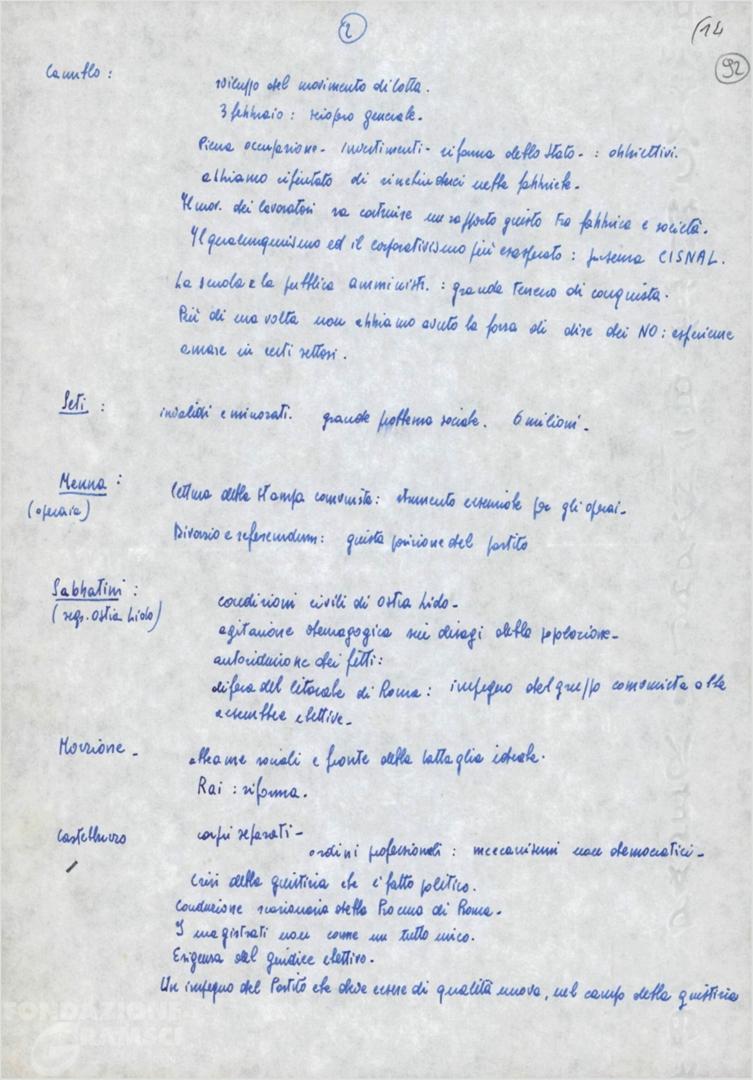 2
14
92
Camillo :
sviluppo del movimento di lotta.
3 febbraio : sciopero generale.
Piena occupazione - Investimenti - riforma dello Stato - : obbiettivi.
abbiamo rifiutato di rinchiuderci nelle fabbriche.
Il mov. dei lavoratori sa costruire un rapporto giusto tra fabbrica e società.
Il qualunquismo ed il corporativismo più esasperato : presenza CISNAL.
La scuola e la pubblica amministr. : grande terreno di conquista.
Più di una volta non abbiamo avuto la forza di dire dei NO : esperienze
amare in certi settori.
Seti :
invalidi e minorati. grande problema sociale. 6 milioni -
Menna :
(operaia)
lettura della stampa comunista : strumento essenziale per gli operai -
Divorzio e referendum : giusta posizione del partito
Sabbatini :
(segr. Ostia Lido)
condizioni civili di Ostia Lido -
agitazione demagogica sui disagi della popolazione -
autoriduzione dei fitti :
difesa del litorale di Roma : impegno del gruppo comunista alle
assemblee elettive -
Morrione -
alleanze sociali e fronte della battaglia ideale.
Rai : riforma.
Castelnuovo
corpi separati -
ordini professionali : meccanismi non democratici -
Crisi della giustizia che è fatto politico.
Conduzione reazionaria della Procura di Roma.
I magistrati non come un tutto unico.
Esigenza del giudice elettivo.
Un impegno del Partito che deve essere di qualità nuova, nel campo della giustizia
FONDAZIONE
GRAMSCI